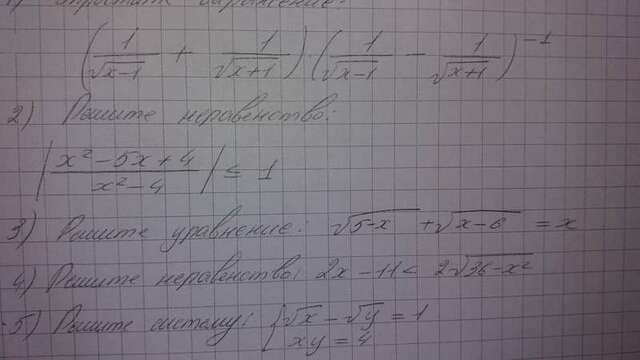 1) Упростите выражение:
(1/√(x-1) + 1/√(x+1)) · (1/√(x-1) - 1/√(x+1))^-1
2) Решите неравенство:
|(x² - 5x + 4)/(x² - 4)| ≤ 1
3) Решите уравнение: √(5-x) + √(x-6) = x
4) Решите неравенство: 2x - 11 < 2√(36-x²)
5) Решите систему: { √x - √y = 1
xy = 4